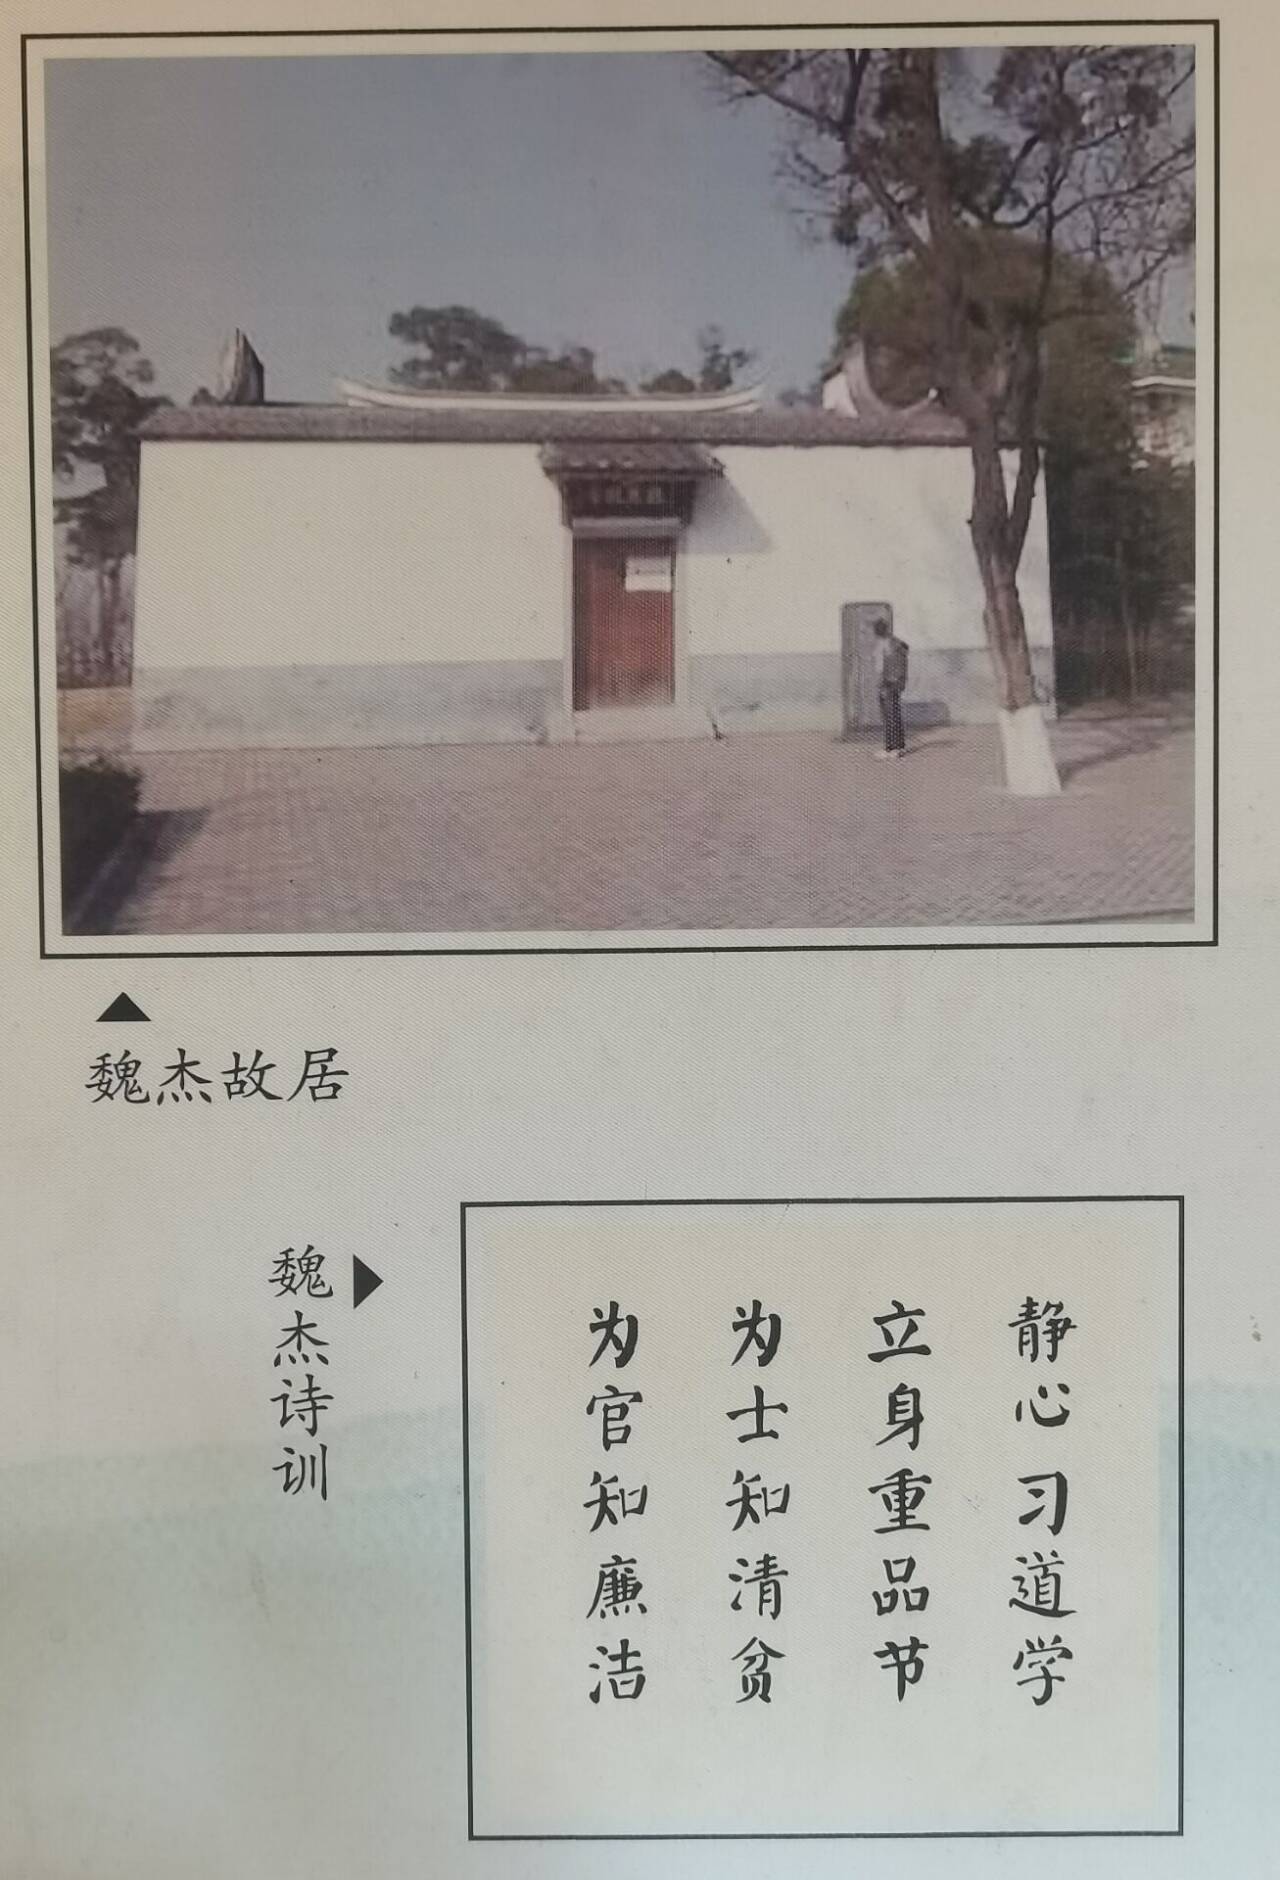 魏杰故居
魏杰诗训
静心习道学
立身重品节
为士知清贫
为官知廉洁